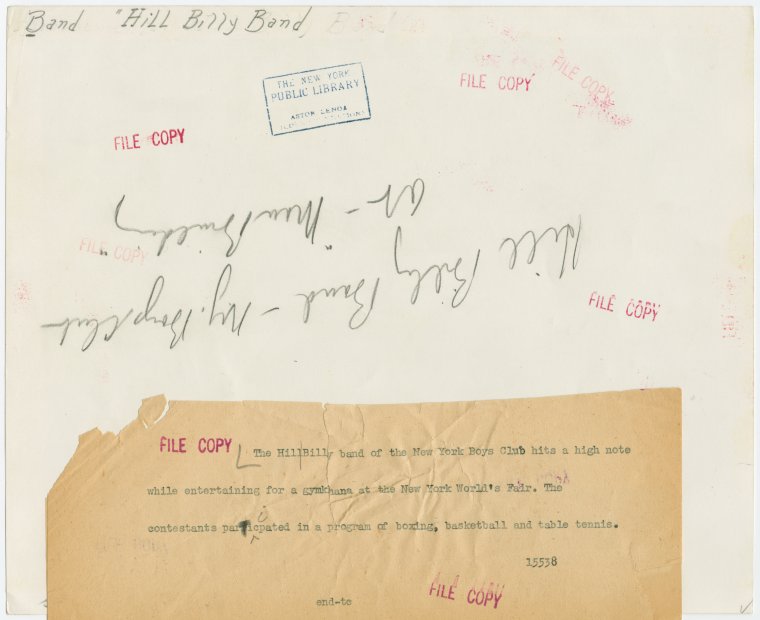 Band "Hill Billy Band,
FILE COPY
FILE COPY
THE NEW YORK
PUBLIC LIBRARY
ASTOR LENOX
FILE COPY
Hill Billy Band - N.Y. Boys Club
at - "New Building"
FILE COPY
FILE COPY
FILE COPY
The HillBilly band of the New York Boys Club hits a high note
while entertaining for a gymkhana at the New York World's Fair. The
i
contestants particpated in a program of boxing, basketball and table tennis.
15538
end-tc
FILE COPY